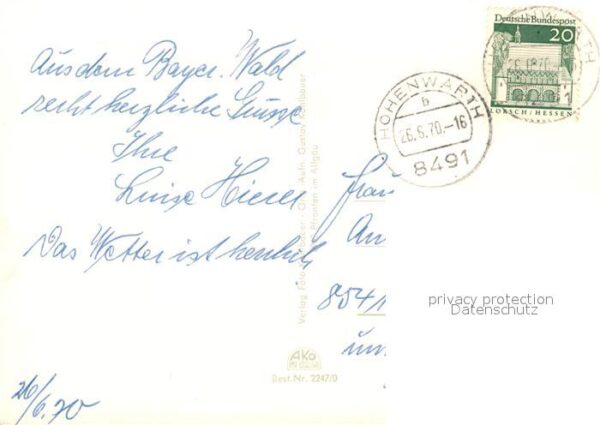 Aus dem Bayer. Wald
recht herzliche Grüsse
Ihre
Luise Hierer
Das Wetter ist herrlich
26/6.70
Frau
An
854/
un
Deutsche Bundespost
20
LORSCH/HESSEN
HOHENWARTH
b
26.6.70.-16
8491
Pfronten im Allgäu
AKO
Best. Nr. 2247/0
privacy protection
Datenschutz